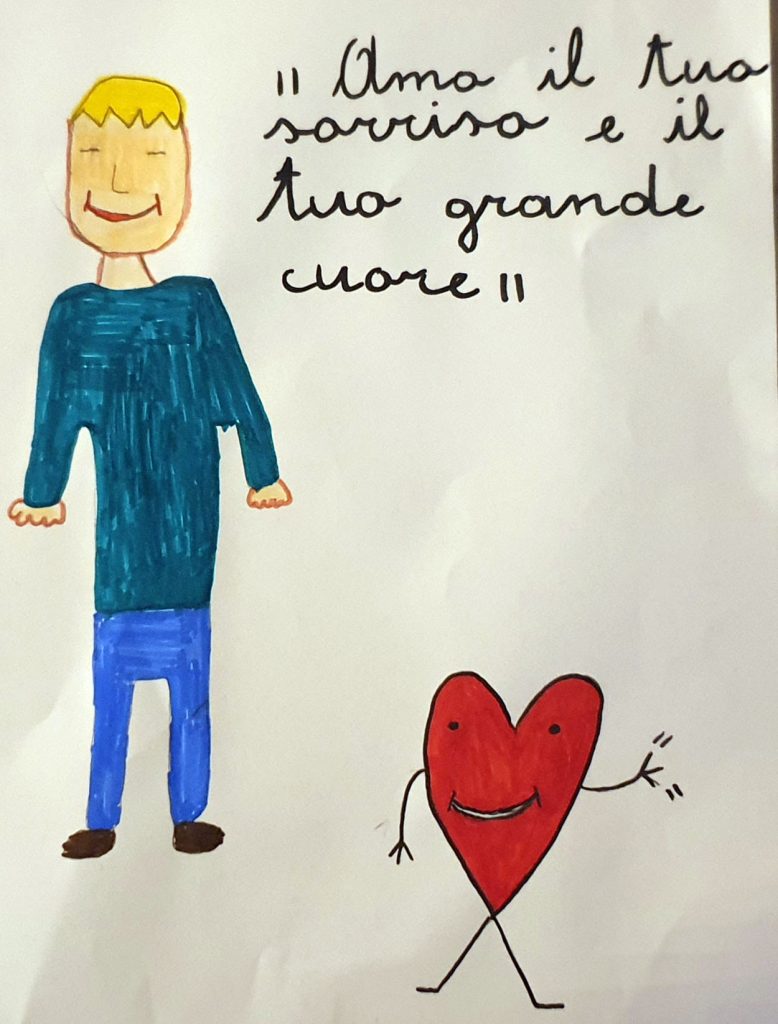 "Amo il tuo
sorriso e il
tuo grande
cuore"